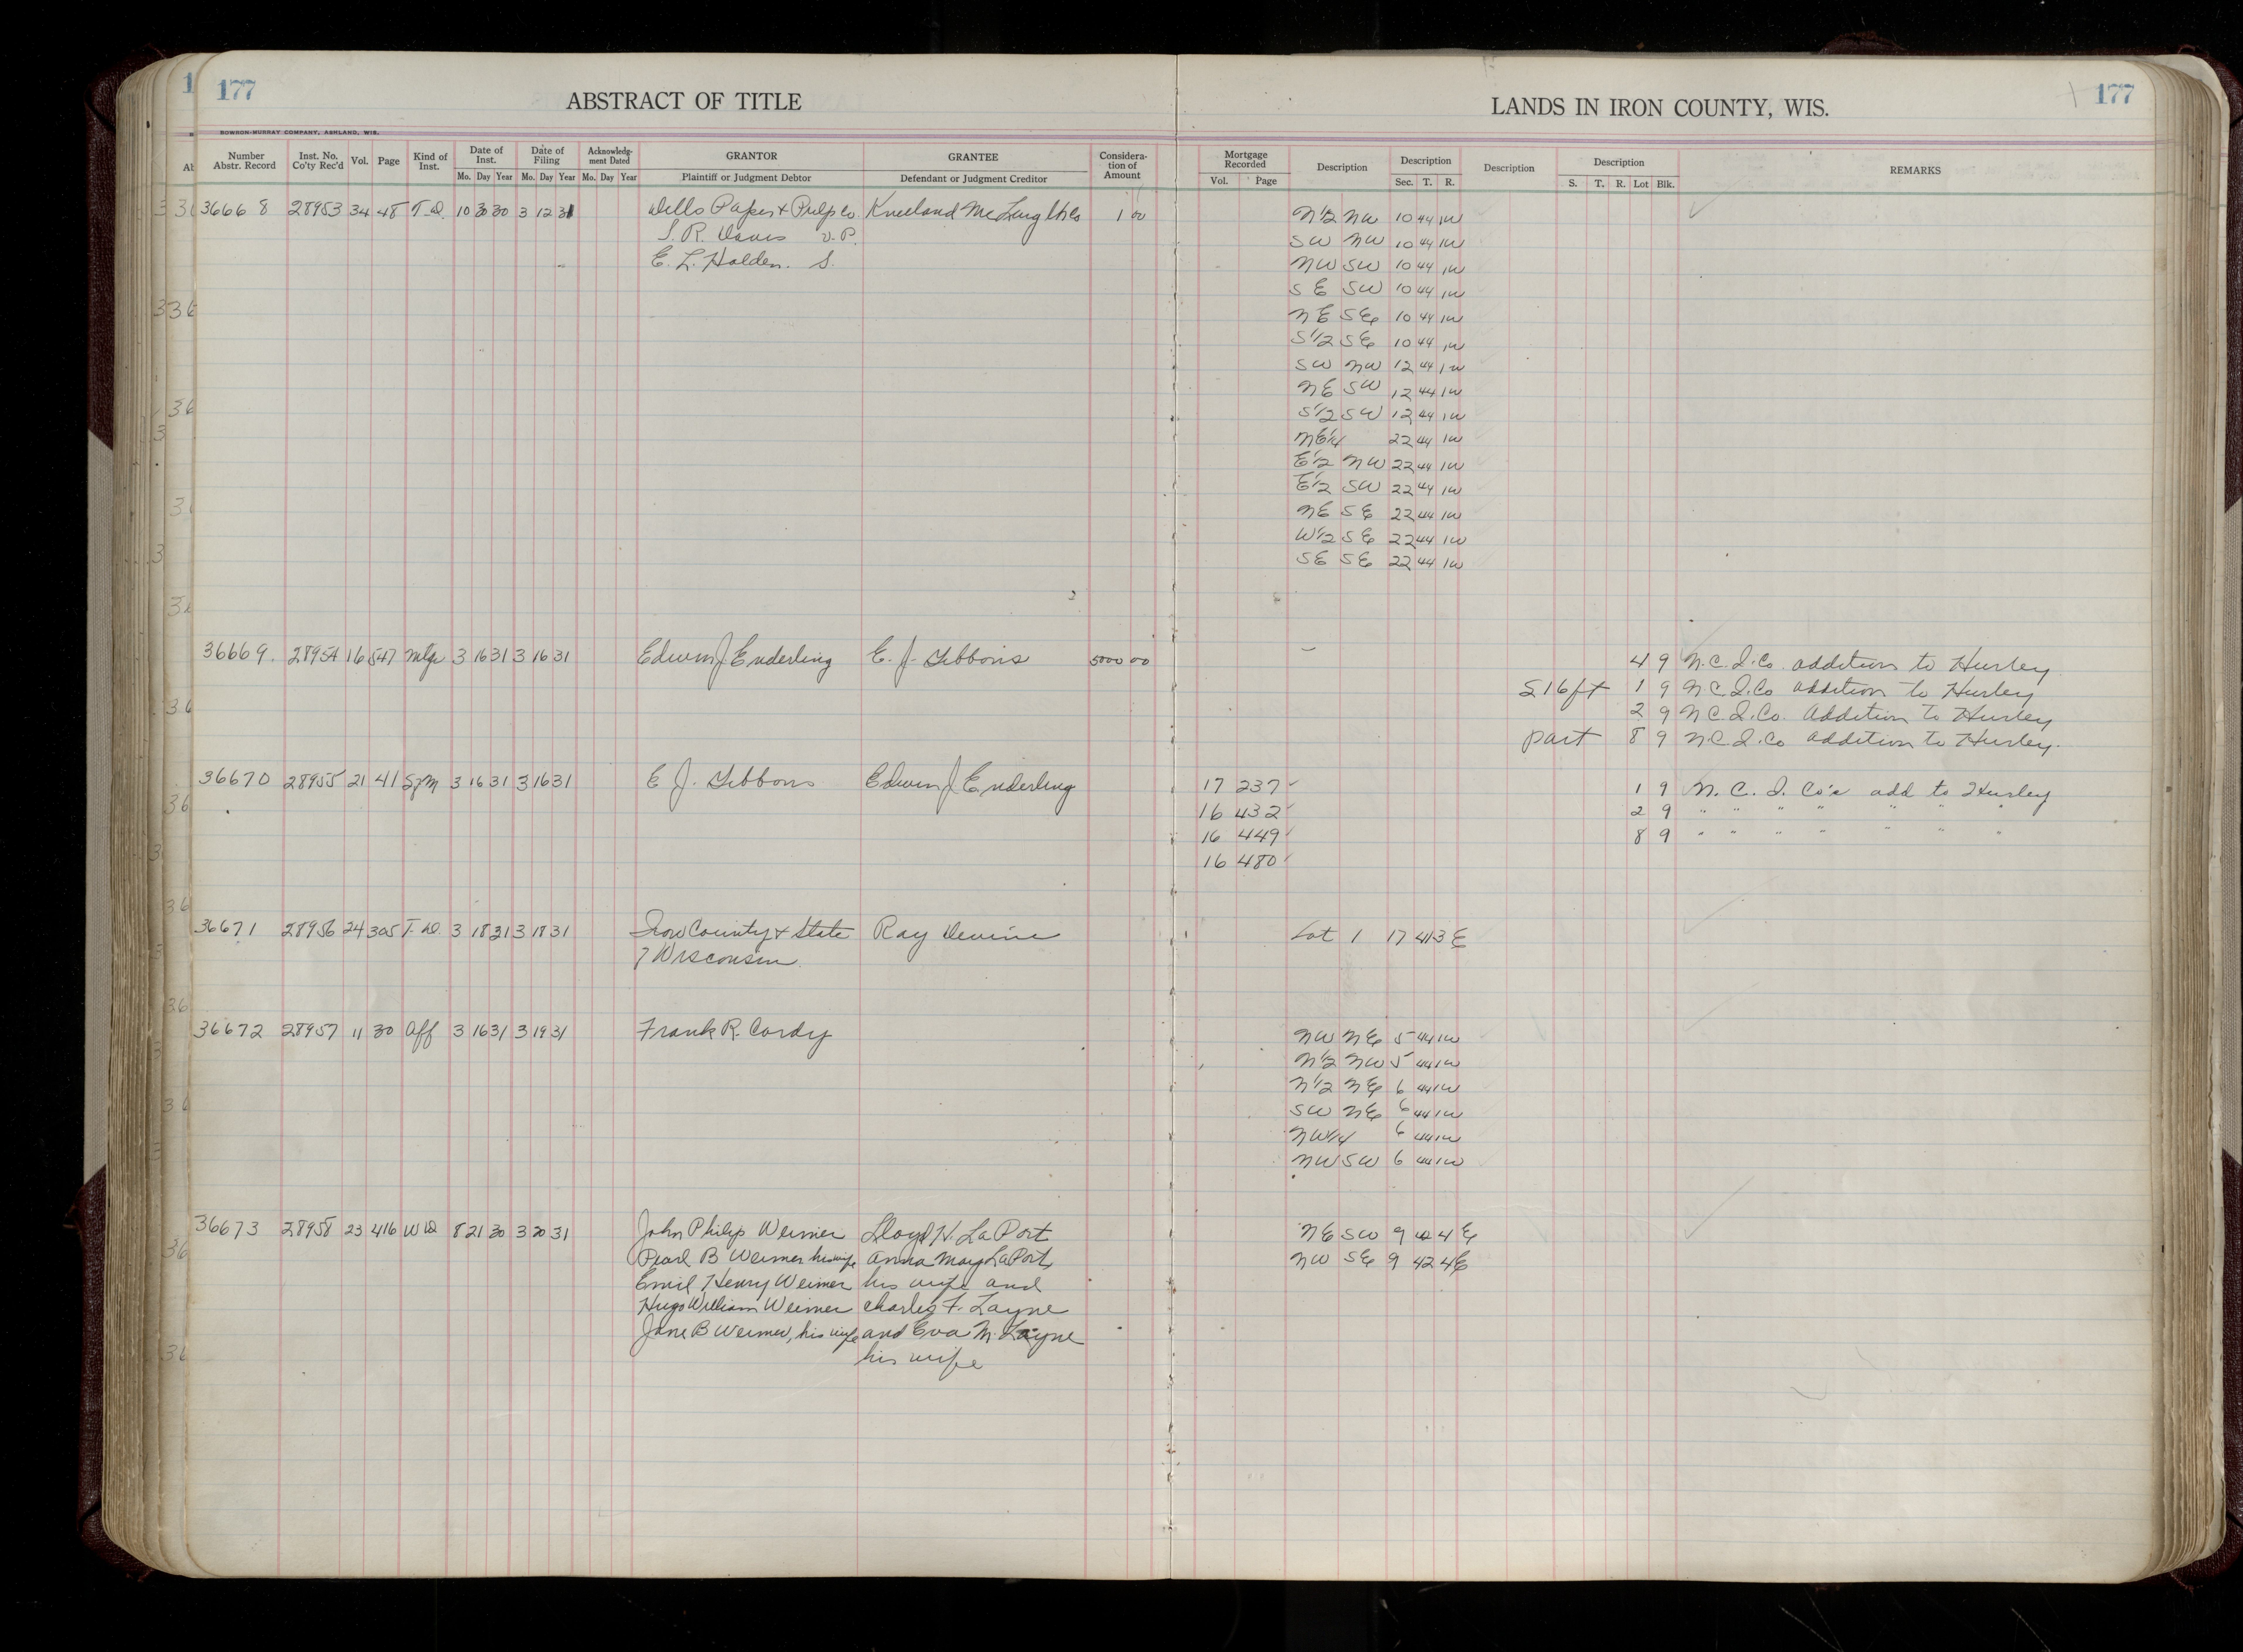 177
ABSTRACT OF TITLE
LANDS IN IRON COUNTY, WIS.
177
BOWRON-MURRAY COMPANY, ASHLAND, WIS.
Number Abstr. Record Inst. No. Co'ty Rec'd Vol. Page Kind of Inst. Date of Inst. Mo. Day Year Date of Filing Mo. Day Year Acknowledg-ment Dated Mo. Day Year GRANTOR Plaintiff or Judgment Debtor GRANTEE Defendant or Judgment Creditor Considera-tion of Amount Mortgage Recorded Vol. Page Description Description Sec. T. R. Description Description S. T. R. Lot Blk. REMARKS
36668 28953 34 48 10 30 30 3 12 31 Wells Paper & Pulp Co Kneeland 1 00 N½ NW 10 44 1W
S. R. Davis V. P. SW NW 10 44 1W
E. L. Halden. S. NW SW 10 44 1W
SE SW 10 44 1W
NE SE 10 44 1W
S½ SE 10 44 1W
SW NW 12 44 1W
NE SW 12 44 1W
S½ SW 12 44 1W
NE¼ 22 44 1W
E½ NW 22 44 1W
E½ SW 22 44 1W
NE SE 22 44 1W
W½ SE 22 44 1W
SE SE 22 44 1W
36669 28954 16 547 Mtge 3 16 31 3 16 31 Edwin J Enderling E. J. Gibbons 5000 00 4 9 N.C.I.Co. addition to Hurley
S 16 ft 1 9 N.C.I.Co addition to Hurley
2 9 N.C.I.Co. Addition to Hurley
part 8 9 N.C.I.Co addition to Hurley.
36670 28955 21 41 SfM 3 16 31 3 16 31 E J. Gibbons Edwin J Enderling 17 237 1 9 N. C. I. Co's add to Hurley
16 432 2 9 " " " " " " "
16 449 8 9 " " " " " " "
16 480
36671 28956 24 305 T. D. 3 18 31 3 18 31 Iron County & State Ray Devine Lot 1 17 41 3E
of Wisconsin
36672 28957 11 30 Aff 3 16 31 3 19 31 Frank R. Cordy NW NE 5 44 1W
N½ NW 5 44 1W
N½ NE 6 44 1W
SW NE 6 44 1W
NW¼ 6 44 1W
NW SW 6 44 1W
36673 28958 23 416 WD 8 21 30 3 20 31 John Philip Weimer Lloyd H. LaPort NE SW 9 42 4E
Pearl B Weimer his wife Anna May LaPort, NW SE 9 42 4E
Emil Henry Weimer his wife and
Hugo William Weimer Charles F. Layne
Jane B Weimer, his wife and Eva M. Layne
his wife